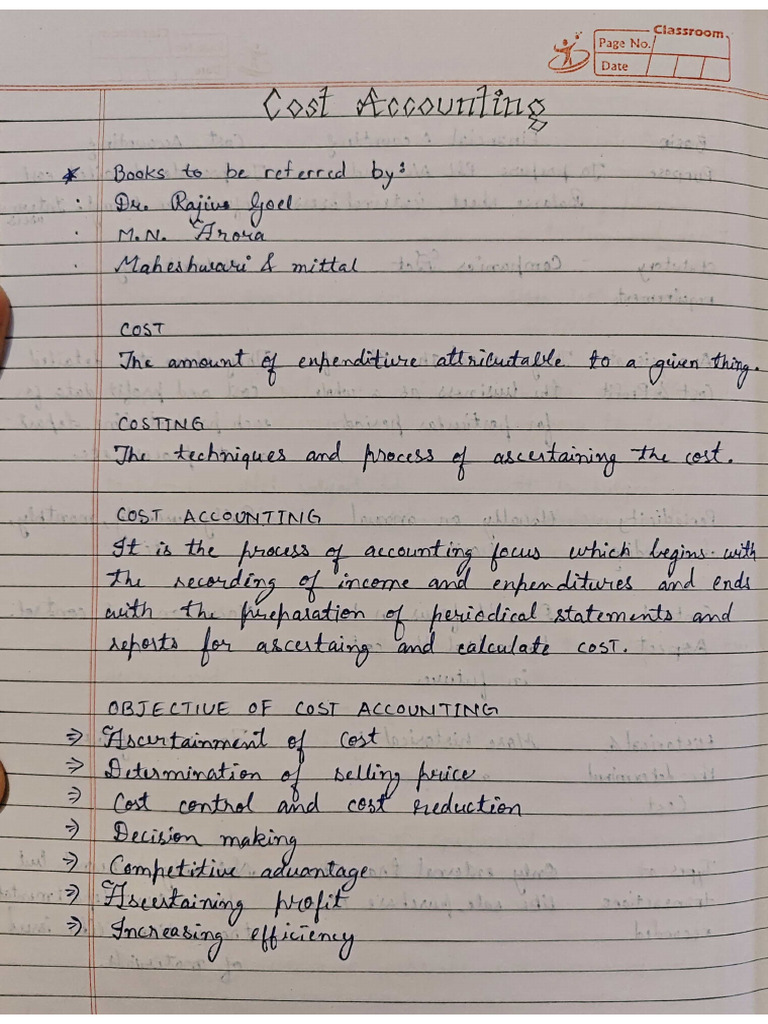 Classroom
Page No.
Date
Cost Accounting
* Books to be referred by:
· Dr. Rajiv Goel
· M.N. Arora
· Maheshwari & mittal
COST
The amount of expenditure attributable to a given thing.
COSTING
The techniques and process of ascertaining the cost.
COST ACCOUNTING
It is the process of accounting focus which begins with
the recording of income and expenditures and ends
with the preparation of periodical statements and
reports for ascertaing and calculate COST.
OBJECTIVE OF COST ACCOUNTING
⇒ Ascertainment of cost
⇒ Determination of selling price
⇒ Cost control and cost reduction
⇒ Decision making
⇒ Competitive advantage
⇒ Ascertaining profit
⇒ Increasing efficiency